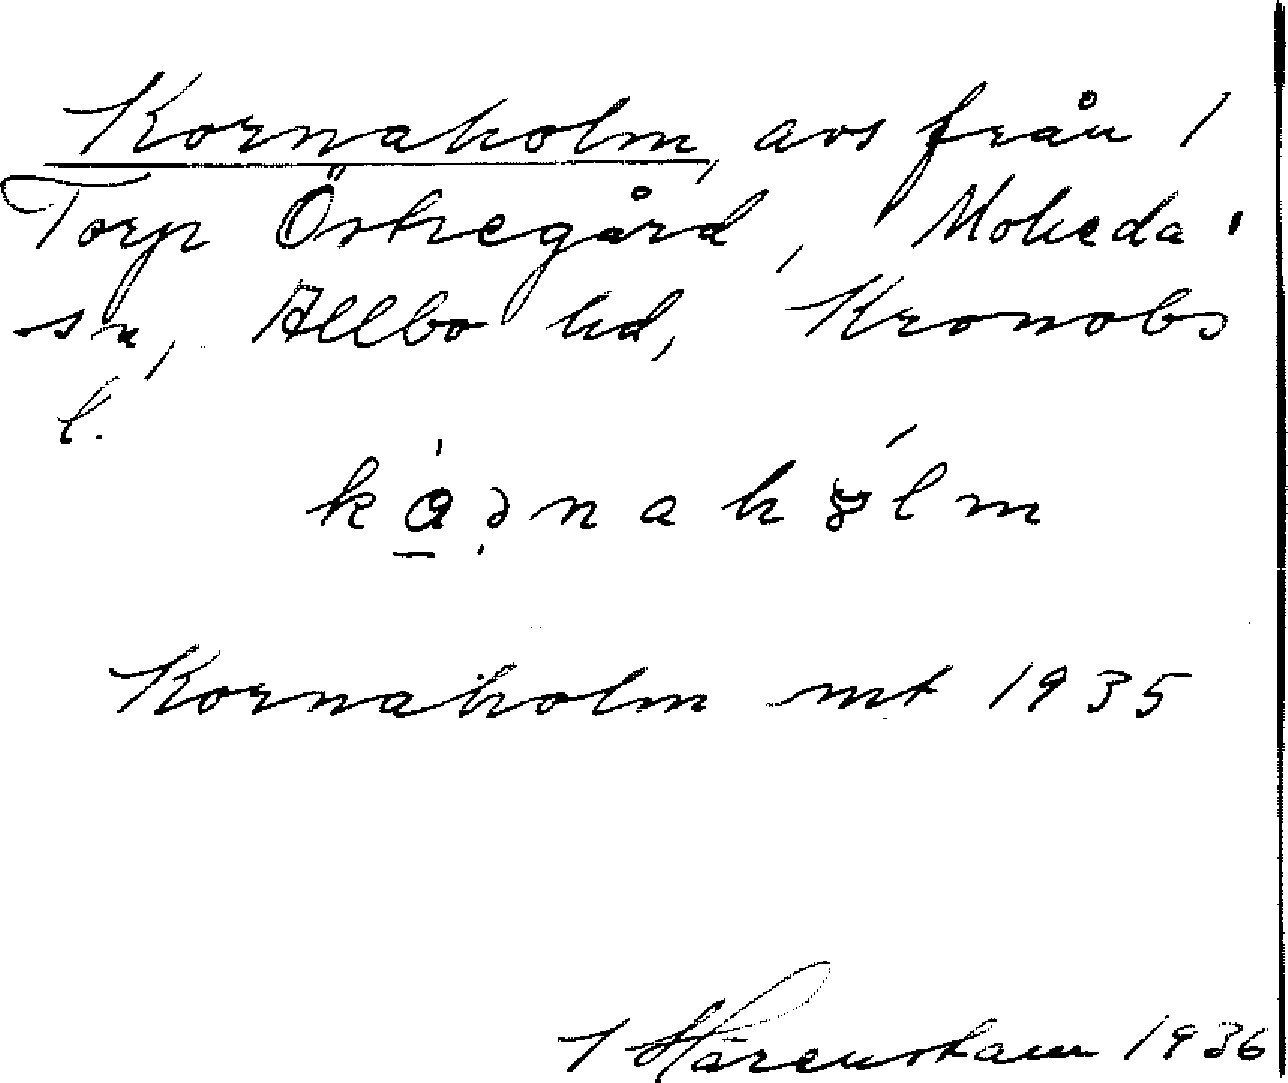 Kornaholm, avs från 1
Torp Östregård, Moheda
sn, Allbo hd, Kronobs
l.
Kornaholm mt 1935
Härenstam 1936